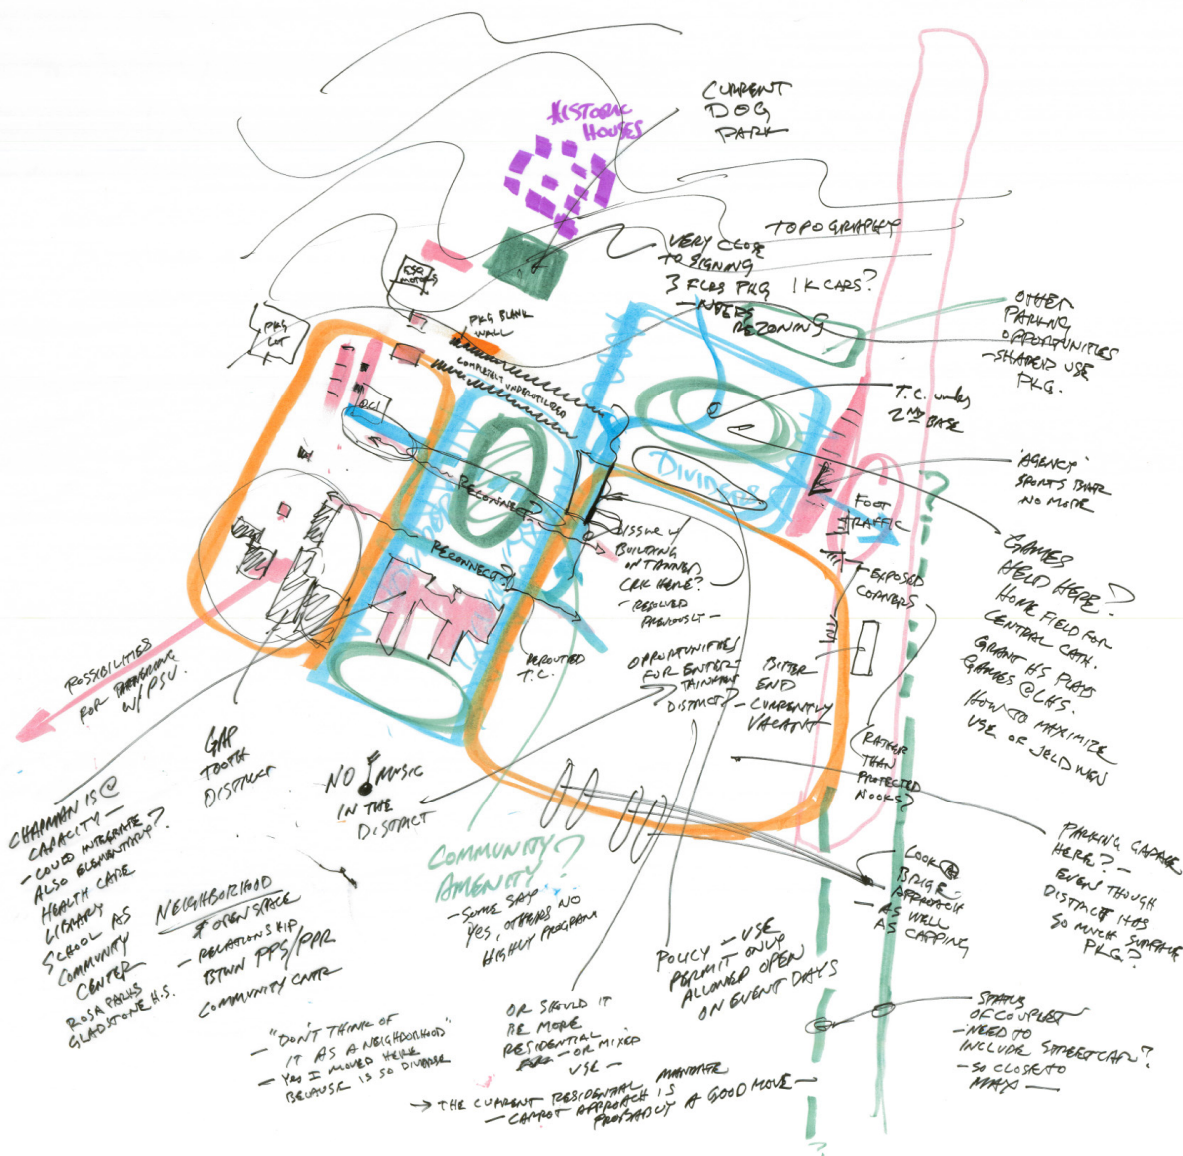 CURRENT
DOG
PARK
HISTORIC
HOUSES
TOPOGRAPHY
VERY CLOSE
TO SIGNING
3 FLRS PKG 1K CARS?
- NEEDS
REZONING
OTHER
PARKING
OPPORTUNITIES
- SHARED USE
PKG.
ESQ
MOTORS
PKG
LOT
PKG BLANK
WALL
COMPLETELY UNDERUTILIZED
T.C. under
2ND BASE
DIVIDERS
AGENCY
SPORTS BAR
NO MORE
FOOT
TRAFFIC
?
RECONNECT?
RECONNECT?
ISSUE W/
BUILDING
ON TANNER
CRK HERE?
- RESOLVED
PREVIOUSLY -
EXPOSED
CORNERS
GAMES
HELD HERE?
HOME FIELD FOR
CENTRAL CATH.
GRANT HS PLAYS
GAMES @ LHS.
HOW TO MAXIMIZE
USE OF JELD WEN
REROUTED
T.C.
OPPORTUNITIES
FOR ENTER-
TAINMENT
DISTRICT?
BITTER
END
- CURRENTLY
VACANT
RATHER
THAN
PROTECTED
NOOKS?
POSSIBILITIES
FOR PARTNERING
W/ PSU.
GAP
TOOTH
DISTRICT
NO MUSIC
IN THE
DISTRICT
CHAPMAN IS @
CAPACITY -
- COULD INTEGRATE
ALSO ELEMENTARY?
HEALTH CARE
LIBRARY
SCHOOL AS
COMMUNITY
CENTER
ROSA PARKS
GLADSTONE H.S.
NEIGHBORHOOD
& OPEN SPACE
- RELATIONSHIP
BTWN PPS/PPR
COMMUNITY CNTR
COMMUNITY
AMENITY?
- SOME SAY
YES, OTHERS NO
HIGHLY PROGRAM
LOOK @
BRIGE
APPROACH
- AS WELL
AS CAPPING
PARKING GARAGE
HERE? -
EVEN THOUGH
DISTRICT HAS
SO MUCH SURFACE
PKG?
POLICY - USE
PERMIT ONLY
ALLOWED OPEN
ON EVENT DAYS
OR SHOULD IT
BE MORE
RESIDENTIAL
- OR MIXED
USE -
- "DON'T THINK OF
IT AS A NEIGHBORHOOD"
- YES I MOVED HERE
BECAUSE IS SO DIVERSE
→ THE CURRENT RESIDENTIAL MANDATE
- CARROT APPROACH IS
PROBABLY A GOOD MOVE -
STATUS
OF COUPLET
- NEED TO
INCLUDE STREETCAR?
- SO CLOSE TO
MAX -
?